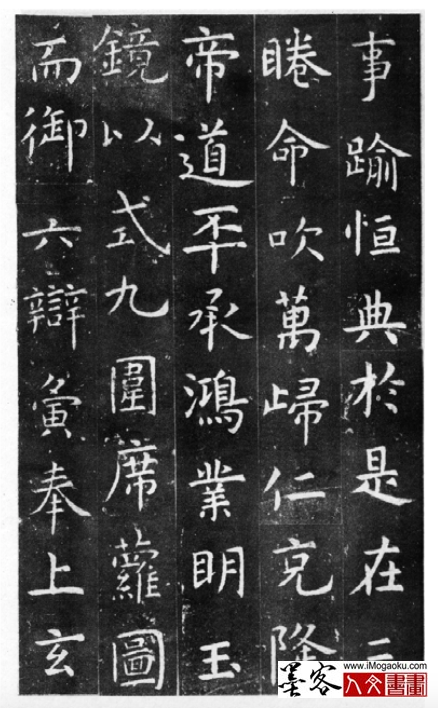 事踰恒典於是在三
睠命吹萬歸仁克隆
帝道丕承鴻業明玉
鏡以式九圍席蘿圖
而御六辯寅奉上玄
www.iMogaoku.com
墨客
人文書畫